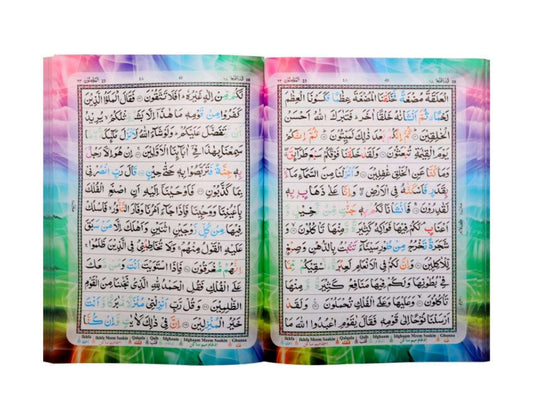 الْعَلَقَةَ مُضْغَةً فَخَلَقْنَا الْمُضْغَةَ عِظٰمًا فَكَسَوْنَا الْعِظٰمَ
لَحْمًا ثُمَّ اَنْشَاْنٰهُ خَلْقًا اٰخَرَ فَتَبٰرَكَ اللّٰهُ اَحْسَنُ
الْخٰلِقِيْنَ ثُمَّ اِنَّكُمْ بَعْدَ ذٰلِكَ لَمَيِّتُوْنَ ثُمَّ اِنَّكُمْ
يَوْمَ الْقِيٰمَةِ تُبْعَثُوْنَ وَلَقَدْ خَلَقْنَا فَوْقَكُمْ سَبْعَ طَرَآئِقَ
وَمَا كُنَّا عَنِ الْخَلْقِ غٰفِلِيْنَ وَاَنْزَلْنَا مِنَ السَّمَآءِ مَآءً
بِقَدَرٍ فَاَسْكَنّٰهُ فِي الْاَرْضِ وَاِنَّا عَلٰى ذَهَابٍ بِهٖ
لَقٰدِرُوْنَ فَاَنْشَاْنَا لَكُمْ بِهٖ جَنّٰتٍ مِّنْ نَّخِيْلٍ
وَّاَعْنَابٍ لَكُمْ فِيْهَا فَوَاكِهُ كَثِيْرَةٌ وَّمِنْهَا تَاْكُلُوْنَ وَ
شَجَرَةً تَخْرُجُ مِنْ طُوْرِ سَيْنَآءَ تَنْۢبُتُ بِالدُّهْنِ وَصِبْغٍ
لِّلْاٰكِلِيْنَ وَاِنَّ لَكُمْ فِي الْاَنْعَامِ لَعِبْرَةً نُسْقِيْكُمْ مِّمَّا
فِيْ بُطُوْنِهَا وَلَكُمْ فِيْهَا مَنَافِعُ كَثِيْرَةٌ وَّمِنْهَا
تَاْكُلُوْنَ وَعَلَيْهَا وَعَلَى الْفُلْكِ تُحْمَلُوْنَ وَلَقَدْ
اَرْسَلْنَا نُوْحًا اِلٰى قَوْمِهٖ فَقَالَ يٰقَوْمِ اعْبُدُوا اللّٰهَ مَا
Ikhfa Ikhfa Meem Saakin Qalqala Qalb Idghaam Idghaam Meem Saakin Ghunna
لَكُمْ مِّنْ اِلٰهٍ غَيْرُهٗ اَفَلَا تَتَّقُوْنَ فَقَالَ الْمَلَؤُا الَّذِيْنَ
كَفَرُوْا مِنْ قَوْمِهٖ مَا هٰذَآ اِلَّا بَشَرٌ مِّثْلُكُمْ يُرِيْدُ اَنْ
يَّتَفَضَّلَ عَلَيْكُمْ وَلَوْ شَآءَ اللّٰهُ لَاَنْزَلَ مَلٰٓئِكَةً مَّا
سَمِعْنَا بِهٰذَا فِيْٓ اٰبَآئِنَا الْاَوَّلِيْنَ اِنْ هُوَ اِلَّا رَجُلٌۢ
بِهٖ جِنَّةٌ فَتَرَبَّصُوْا بِهٖ حَتّٰى حِيْنٍ قَالَ رَبِّ انْصُرْنِيْ
بِمَا كَذَّبُوْنِ فَاَوْحَيْنَآ اِلَيْهِ اَنِ اصْنَعِ الْفُلْكَ
بِاَعْيُنِنَا وَوَحْيِنَا فَاِذَا جَآءَ اَمْرُنَا وَفَارَ التَّنُّوْرُ فَاسْلُكْ
فِيْهَا مِنْ كُلٍّ زَوْجَيْنِ اثْنَيْنِ وَاَهْلَكَ اِلَّا مَنْ سَبَقَ
عَلَيْهِ الْقَوْلُ مِنْهُمْ وَلَا تُخَاطِبْنِيْ فِي الَّذِيْنَ ظَلَمُوْا
اِنَّهُمْ مُّغْرَقُوْنَ فَاِذَا اسْتَوَيْتَ اَنْتَ وَمَنْ مَّعَكَ
عَلَى الْفُلْكِ فَقُلِ الْحَمْدُ لِلّٰهِ الَّذِيْ نَجّٰنَا مِنَ الْقَوْمِ
الظّٰلِمِيْنَ وَقُلْ رَّبِّ اَنْزِلْنِيْ مُنْزَلًا مُّبٰرَكًا وَّاَنْتَ
خَيْرُ الْمُنْزِلِيْنَ اِنَّ فِيْ ذٰلِكَ لَاٰيٰتٍ وَّاِنْ كُنَّا
Ikhfa Ikhfa Meem Saakin Qalqala Qalb Idghaam Idghaam Meem Saakin Ghunna